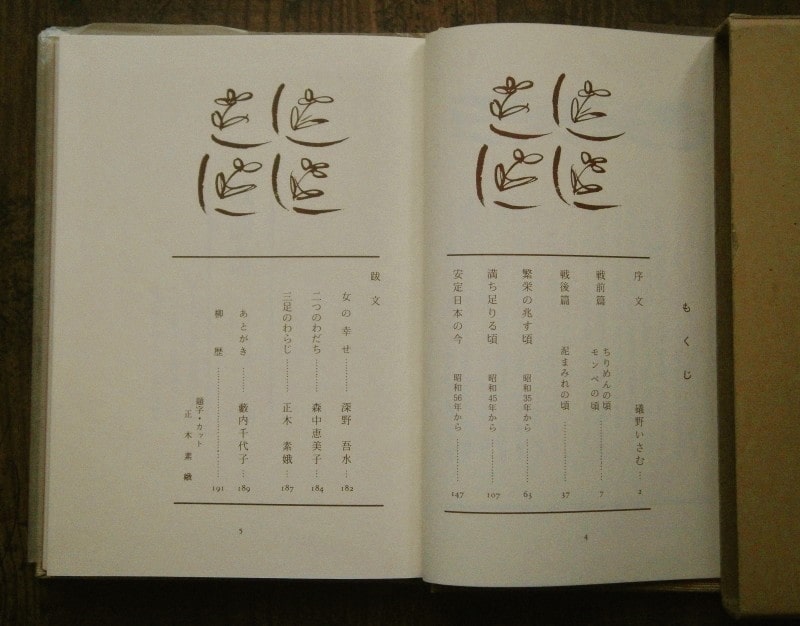 もくじ
序文 礒野いさむ … 2
戦前篇 ちりめんの頃
モンペの頃 ………… 7
戦後篇 泥まみれの頃 ………… 37
繁栄の兆す頃 昭和35年から ………… 63
満ち足りる頃 昭和45年から ………… 107
安定日本の今 昭和56年から ………… 147
4
跋文
女の幸せ ………… 深野吾水 … 182
二つのわだち ………… 森中恵美子 … 184
三足のわらじ ………… 正木素娥 … 187
あとがき ………… 藪内千代子 … 189
柳歴 ………… 191
題字・カット
正木素娥
5